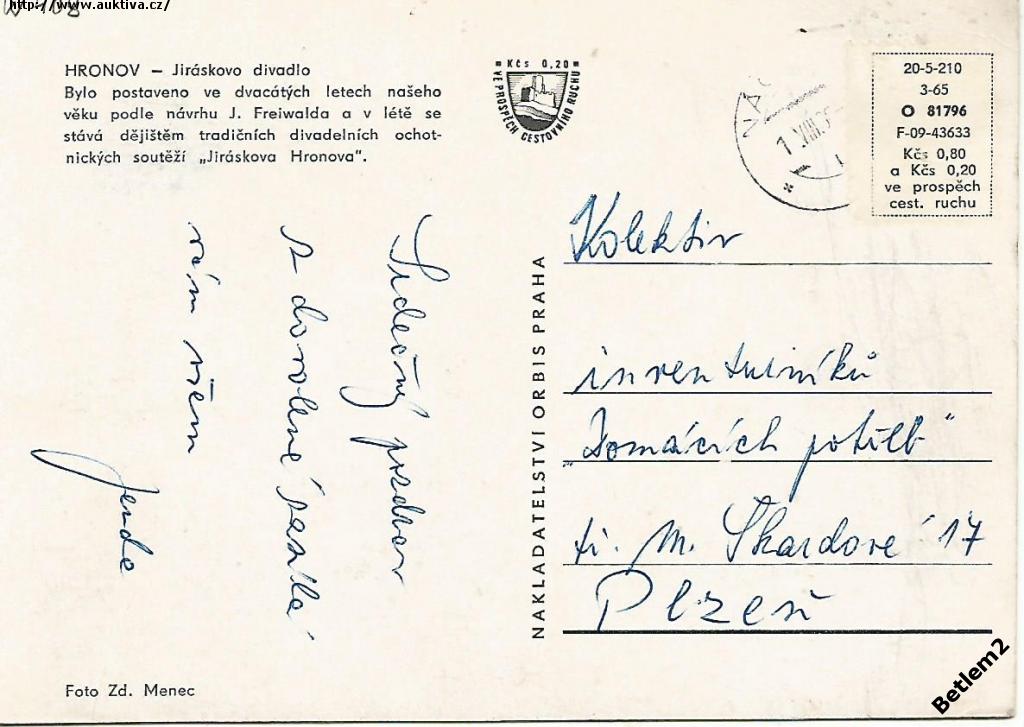 http://www.auktiva.cz/
HRONOV – Jiráskovo divadlo
Bylo postaveno ve dvacátých letech našeho
věku podle návrhu J. Freiwalda a v létě se
stává dějištěm tradičních divadelních ochot-
nických soutěží „Jiráskova Hronova".
Srdečný pozdrav
z dovolené zasílá
vám všem
Jenda
Foto Zd. Menec
Kčs 0,20
VE PROSPĚCH CESTOVNÍHO RUCHU
NAKLADATELSTVÍ ORBIS PRAHA
1. VIII.
20-5-210
3-65
O 81796
F-09-43633
Kčs 0,80
a Kčs 0,20
ve prospěch
cest. ruchu
Kolektiv
inventurníků
„Domácích potřeb"
tř. M. Škardové 17
Plzeň
Betlem2